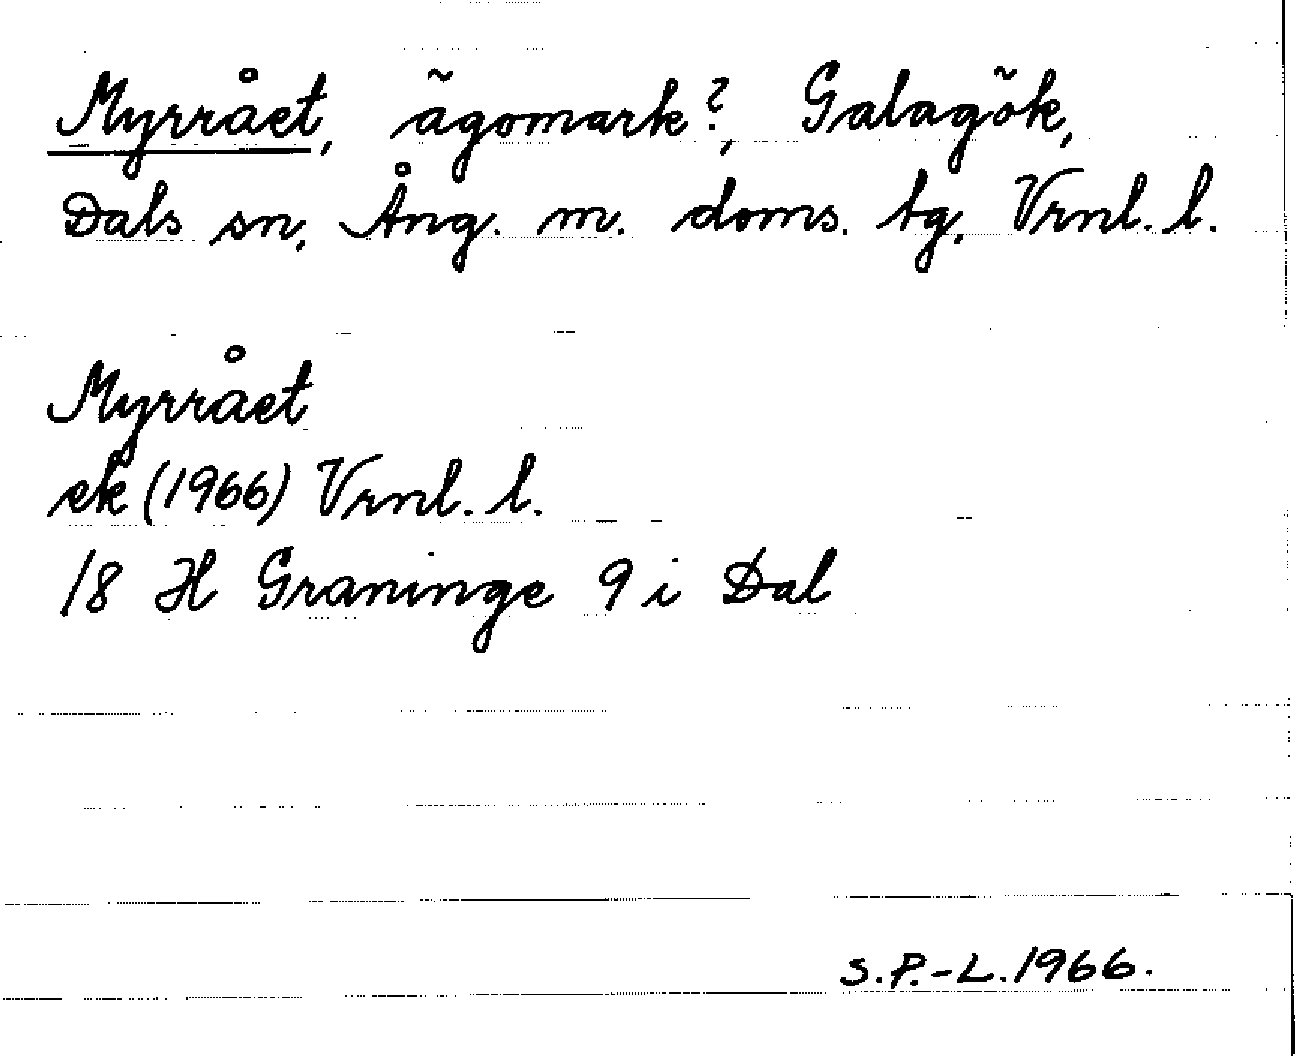 Myrrået, ägomark?, Galagök,
Dals sn, Ång. m. doms. tg, Vrnl. l.
Myrrået
ek (1966) Vrnl. l.
/8 H Graninge 9 i Dal
S.P.-L. 1966.